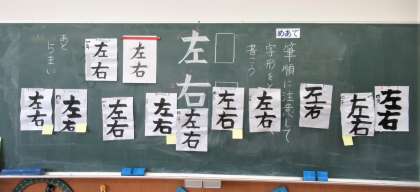 めあて
筆順に注意して
字形を
書こう
左右
左右
左右
あと
二まい
左右
左右
左右
左右
左右
左右
左右
左右
左右
左右